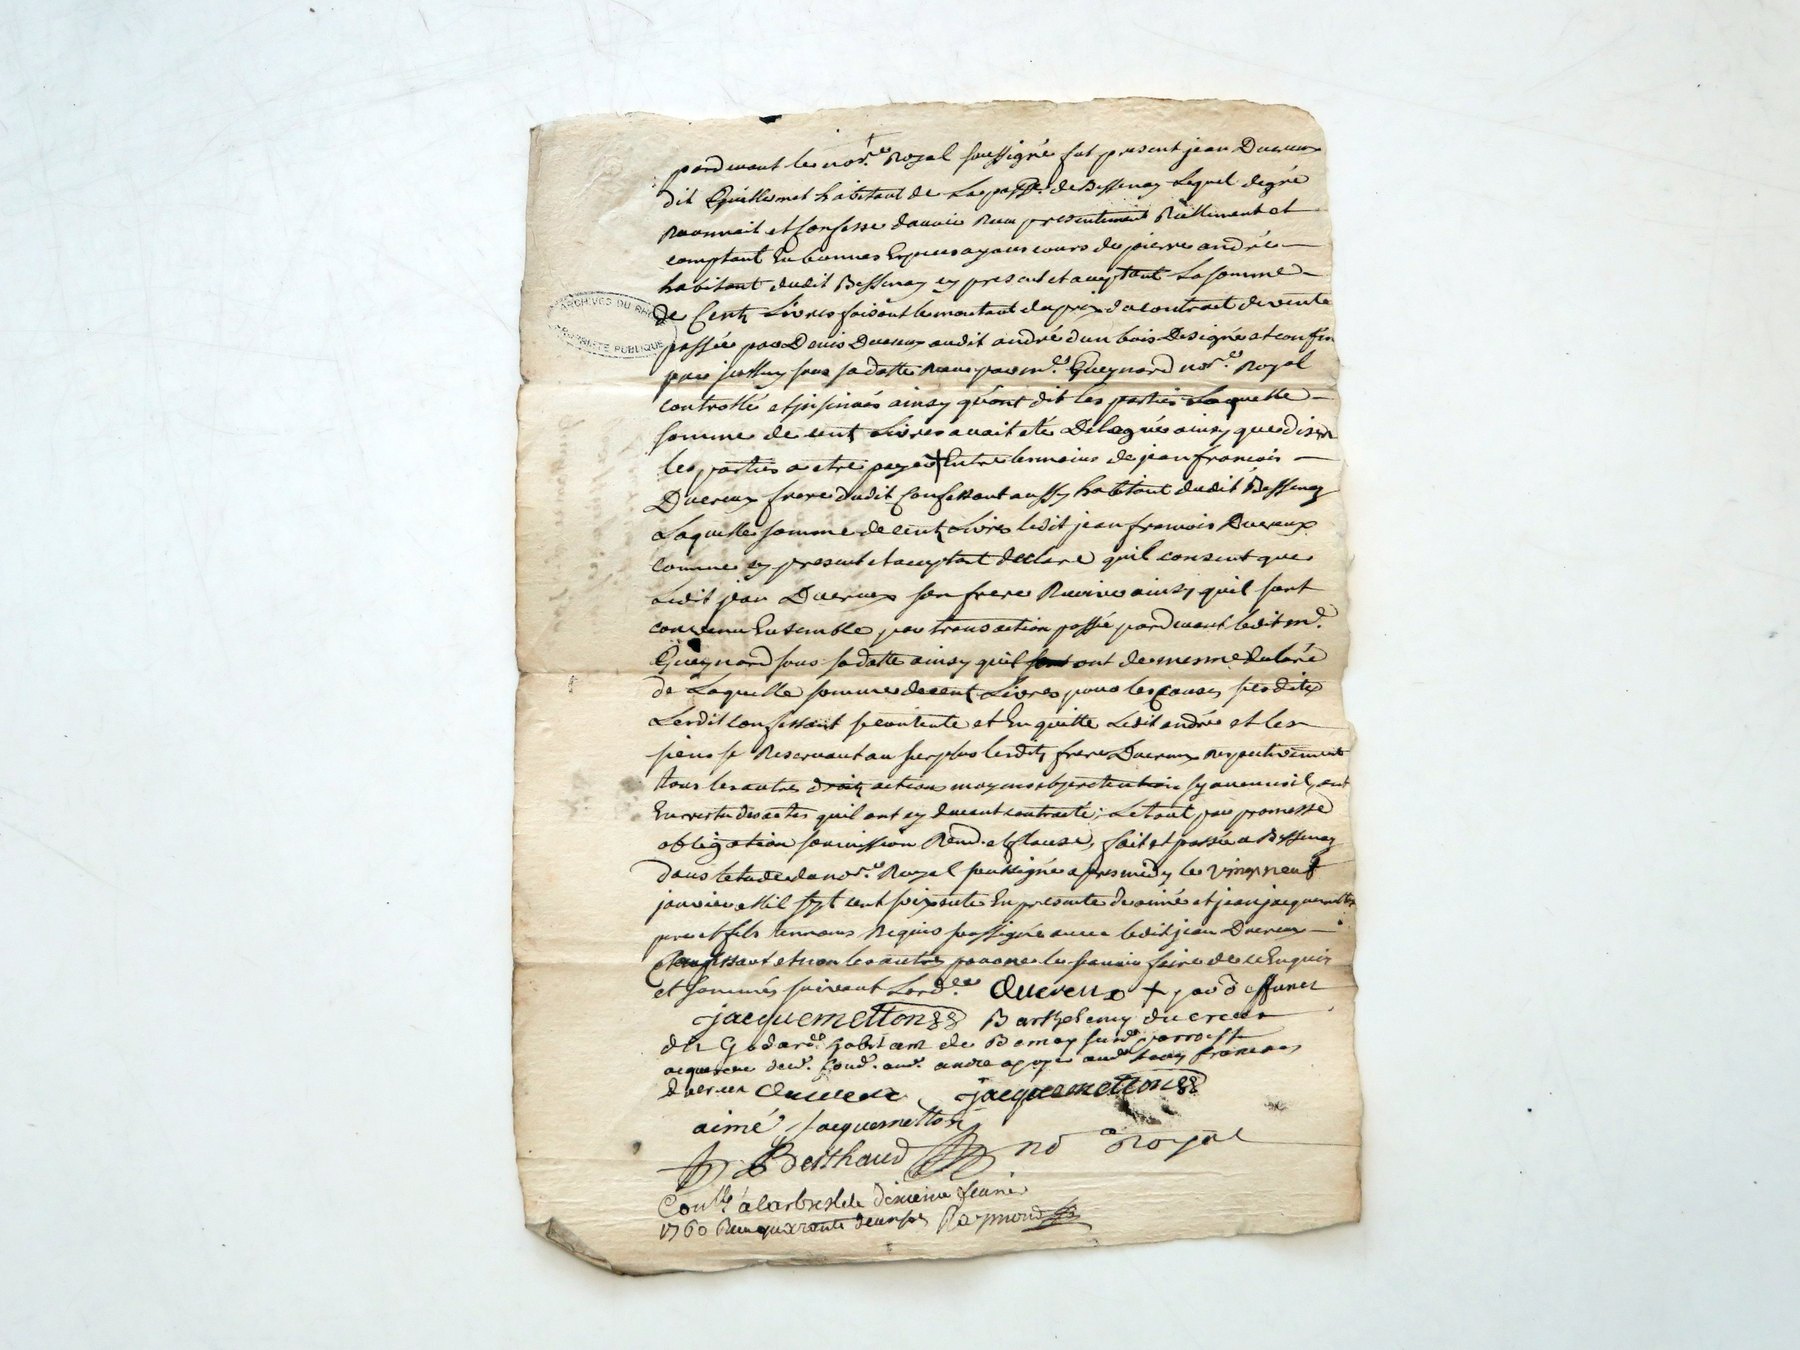 pardevant le no.re Royal soussigné fut present jean Ducreux
dit habitant de La de Bessenay Lequel de gré
Reconnait et Confesse d'avoir Recu presentement Réellement et
comptant En bonnes Especes ayans cours de pierre andré
habitant dudit Bessenay cy present et acceptant La somme
de Cent Livres faisant le montant du prix du contract de vente
passée par Denis Ducreux audit andré d'un bois Designé et confiné
sous sa datte Recu par m.e Gueynard no.re Royal
controllé et insinué ainsy qu'ont dit les parties Laquelle
somme de cent Livres avait été Deleguée ainsy que disent
les parties a etre payée + Entre les mains de jean francois
Ducreux frere dudit Confessant aussy habitant dudit Bessenay
Laquelle somme de cent Livres ledit jean francois Ducreux
comme cy present et acceptant declare qu'il consent que
ledit jean Ducreux son frere Recoive ainsy qu'il sont
convenu Ensemble par transaction passé pardevant ledit m.e
Gueynard sous sa datte ainsy quil sont ont de mesme declaré
de Laquelle somme de cent Livres pour les causes susdites
Ledit Confessant se contente et En quitte Ledit andré et les
siens se Reservant au surplus lesdits frere Ducreux respectivement
tous les autres droits actions moyens et pretentions sy aucuns ils ont
En vertu des actes quil ont cy devant contracté; Le tout par promesse
obligation soumission Renon. et Clauses, fait et passé a Bessenay
dans letude du no.re Royal soussigné apres midy le vingt neuf
janvier Mil sept cent soixante En presence de aimé et jean jacquemetton
pere et fils temoins Requis soussignés avec ledit jean Ducreux
Confessant et non les autres pour ne le savoir faire de ce Enquis
et sommés suivant Lord.ce Ducreux + par deffunct
jacquemetton Barthelemy ducreux
dit Godard habitant de
acquereur andre a payer jean francois
ducreux Ducreux jacquemetton
aimé jacquemetton
Berthaud no.re Royal
Con.lé a larbresle le fevrier
1760 Recu Raymond
ARCHIVES DU RHÔNE
PROPRIÉTÉ PUBLIQUE